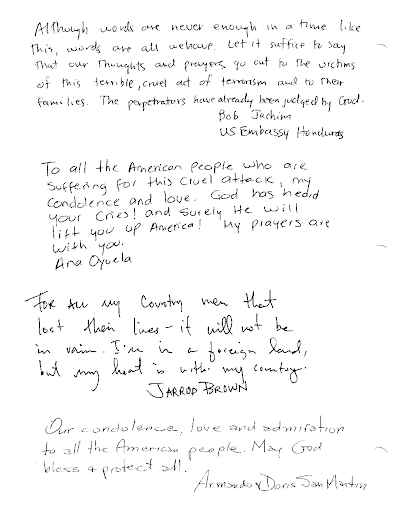 Although words are never enough in a time like
this, words are all we have. Let it suffice to say
that our thoughts and prayers go out to the victims
of this terrible, cruel act of terrorism and to their
families. The perpetrators have already been judged by God.
Bob Jachim
US Embassy Honduras
To all the American People who are
suffering for this cruel attack, my
Condolence and love. God has heard
your Cries! and Surely He will
lift you up America! My prayers are
with you.
Ana Oyuela
For All my Country men that
lost their lives - it will not be
in vain. I'm in a foreign land,
but my heart is with my country.
JARROD BROWN
Our condolence, love and admiration
to all the American people. May God
bless & protect all.
Armando y Doris San Martin